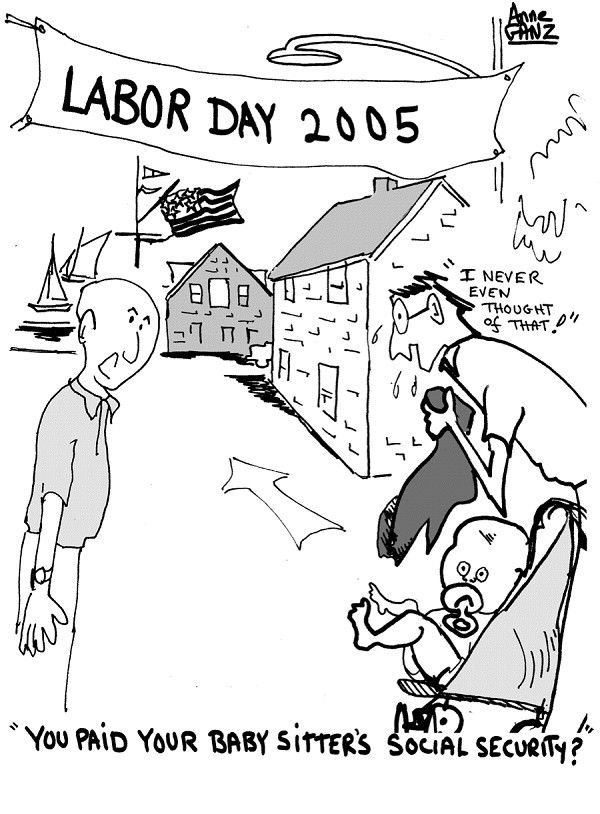 Anne
GANZ
LABOR DAY 2005
"I NEVER
EVEN
THOUGHT
of THAT!"
"YOU PAID YOUR BABY SITTER'S SOCIAL SECURITY?"